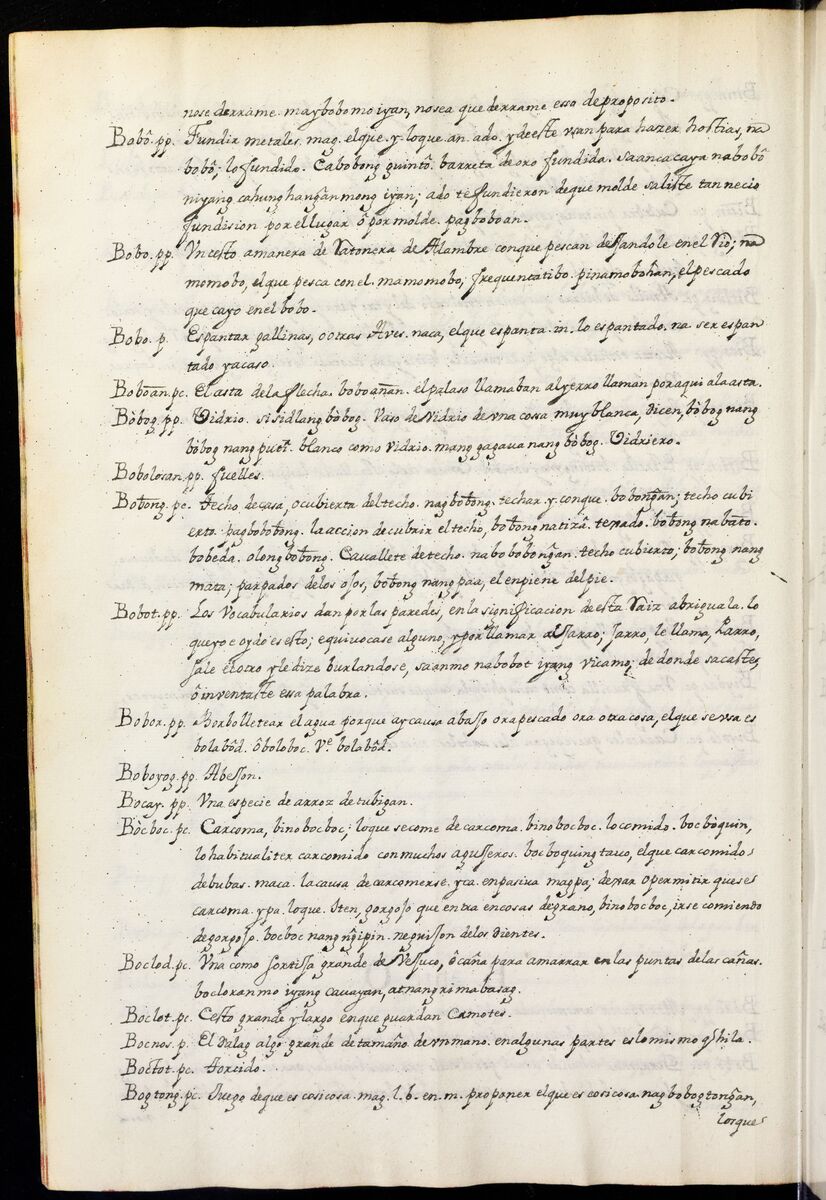 nose derrame. maybobo mo iyan, no sea que derrame esso deproposito.
Bobô. pp. Fundir metales. mag. elque. y. loque. an. ado. y de este vsan para hazer hostias, na
bobô; lo fundido. Cabobong guintô. barreta de oro fundida. saanca caya nabobô
niyang cahunghangan mong iyan; ado te fundieron de que molde saliste tan necio
fundision por el lugar ô por molde. pagboboan.
Bobo. pp. Vn cesto amanera de Ratonera de Alambre conque pescan dexandole en el Rio; na
momobo, el que pesca con el. mamomobo; frequentatibo. pinamobohan, el pescado
que cayo en el bobo.
Bobo. p. Espantar gallinas, o otras Aves. naca, el que espanta. in. lo espantado. na ser espan
tado y acaso.
Boboan. pc. El asta de la flecha. boboanan. el palaso llamaban al yerro llaman por aqui a la asta.
Bòbog. pp. Vidrio. sisidlang bòbog. Vaso de Vidrio de vna cosa muy blanca, dicen, bòbog nang
bòbog nang putî. blanco como vidrio. mang gagaua nang bòbog. Vidriero.
Bobolosan. pp. fuelles.
Bobong. pc. Techo de casa, o cubierta del techo. nagbobong. techar. y. conque. bobongan; techo cubi
erto. pagbobobong. la accion de cubrir el techo, bobong na tizâ. texado. bobong na bato.
bobeda. olong bobong. Cavallete de techo. nabobobongan. techo cubierto; bobong nang
mata; parpados de los ojos, bobong nang paa, el enpiene del pie.
Bobot. pp. Los Vocabularios dan por las paredes, en la significacion de esta Raiz abriguala. lo
que yo e oydo es esto; equivocase alguno, y por llamar al Jarao; Jarro, le llama, Zarro,
sale el otro y le dize burlandose, saan mo nabobot iyang vicamo; de donde sacaste,
ô inventaste essa palabra.
Bobor. pp. Borbolletear el agua porque ay causa abaxo ora pescado ora otra cosa, el que se vsa es
bolabôd. ôboloboc. Vᵉ. bolabôd.
Boboyog. pp. Abexon.
Bocay. pp. Vna especie de arroz de tubigan.
Bòcboc. pc. Carcoma, binobocboc; lo que se come de carcoma. binobocboc. lo comido. bocbòquin,
lo habitualiter carcomido con muchos agujeros. bocboquing tauo, el que carcomido
de bubas. maca. la causa de carcomerse. y ca. en pasiva magpa; dexar o permitir que se
carcoma. y pa. lo que. Iten, gorgojo que entra en cosas de grano, binobocboc, irse comiendo
de gorgojo. bocboc nang ngipin. neguijon de los dientes.
Boclod. pc. Vna como sortixa grande de Vejuco, ô caña para amarrar en las puntas de las cañas.
bocloran mo iyang cauayan, at nang ri mabasag.
Boclot. pc. Cesto grande y largo en que guardan Camotes.
Bocnos. p. El Dalag algo grande de tamaño de vn mano. en algunas partes es lo mismo q̃ hila.
Boctot. pc. Torcido.
Bogtong. pc. Juego de que es cosicosa. mag. l. b. en. m. proponer el que es cosicosa. nagbobogtongan,
los que